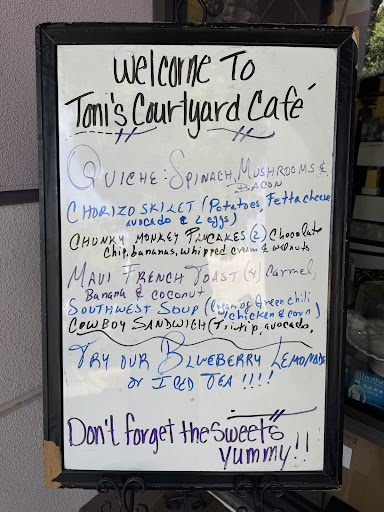 Welcome To
Toni's Courtyard Café
Quiche: Spinach, Mushrooms &
Bacon
Chorizo skilet (Potatoes, Fetta cheese
avocado & 2 eggs)
Chunky monkey Pancakes (2) Chocolate
chip, bananas, whipped cream & walnuts
Maui French Toast (4) Carmel,
Banana & coconut
Southwest Soup (Cream of Green chili
w/chicken & corn)
Cowboy Sandwich (Tritip, avocado,
Try our Blueberry Lemonade
or Iced Tea !!!!
Don't forget the sweets
yummy!!